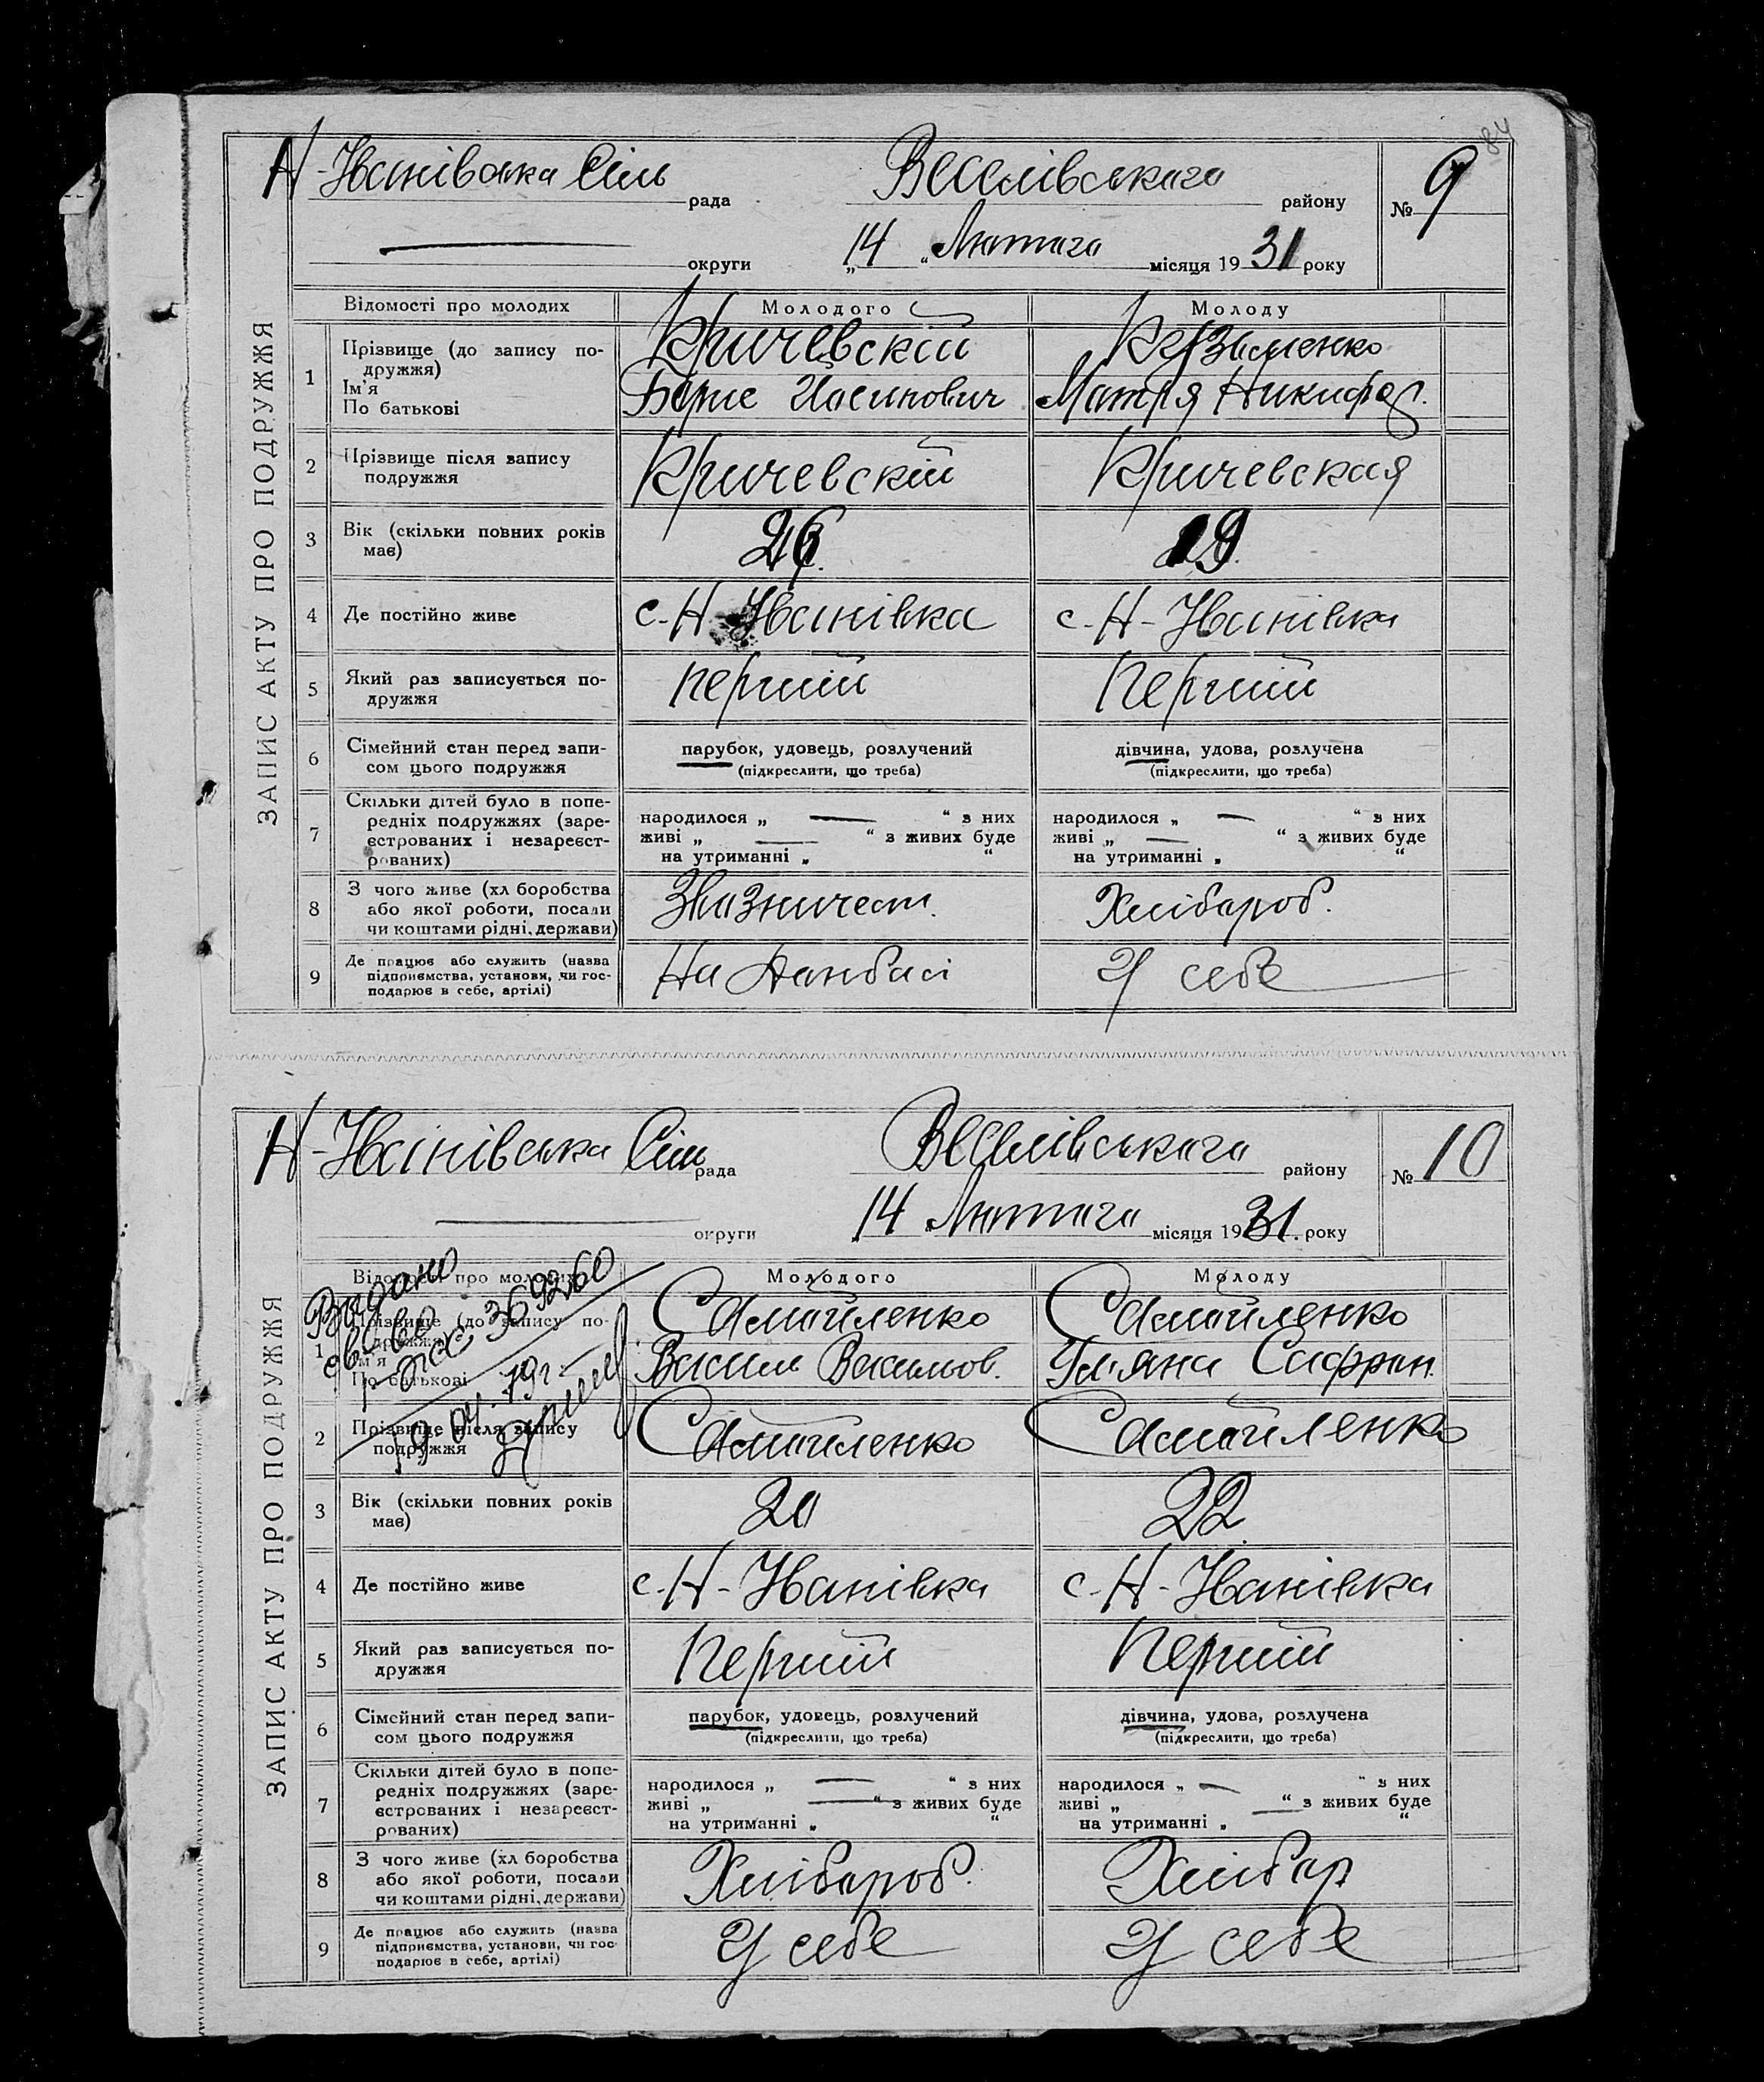 84
Н-Іванівська Сіль рада Веселівського району № 9
округи „14“ Лютого місяця 1931 року
ЗАПИС АКТУ ПРО ПОДРУЖЖЯ
Відомості про молодих Молодого Молоду
1 Прізвище (до запису по-
дружжя)
Ім'я
По батькові
Кричевскій Кузьменко
Борис Иосипович Мотря Никифор.
2 Прізвище після запису
подружжя
Кричевскій Кричевская
3 Вік (скільки повних років
має)
26. 19.
4 Де постійно живе с-Н-Іванівка с-Н-Іванівка
5 Який раз записується по-
дружжя
перший Перший
6 Сімейний стан перед запи-
сом цього подружжя
парубок, удовець, розлучений дівчина, удова, розлучена
(підкреслити, що треба) (підкреслити, що треба)
7 Скільки дітей було в попе-
редніх подружжях (заре-
єстрованих і незареєст-
рованих)
народилося „ — “ з них народилося „ — “ з них
живі „ — “ з живих буде живі „ — “ з живих буде
на утриманні „ “ на утриманні „ “
8 З чого живе (хл боробства
або якої роботи, посади
чи коштами рідні, держави)
Хлібороб.
9 Де працює або служить (назва
підприємства, установи, чи гос-
подарює в себе, артілі)
На Донбасі У себе
Н-Іванівська Сіль рада Веселівського району № 10
округи „14“ Лютого місяця 1931. року
ЗАПИС АКТУ ПРО ПОДРУЖЖЯ
Відомості про молодих Молодого Молоду
Видано
369260
19.04.79г.
1 Прізвище (до запису по-
дружжя)
Ім'я
По батькові
Самойленко Самойленко
Василь Васильов. Уляна Сафрон.
2 Прізвище після запису
подружжя
Самойленко Самойленко
3 Вік (скільки повних років
має)
20 22
4 Де постійно живе с-Н-Іванівка с-Н-Іванівка
5 Який раз записується по-
дружжя
Перший Перший
6 Сімейний стан перед запи-
сом цього подружжя
парубок, удовець, розлучений дівчина, удова, розлучена
(підкреслити, що треба) (підкреслити, що треба)
7 Скільки дітей було в попе-
редніх подружжях (заре-
єстрованих і незареєст-
рованих)
народилося „ — “ з них народилося „ — “ з них
живі „ — “ з живих буде живі „ — “ з живих буде
на утриманні „ “ на утриманні „ “
8 З чого живе (хл боробства
або якої роботи, посади
чи коштами рідні, держави)
Хлібороб. Хлібор
9 Де працює або служить (назва
підприємства, установи, чи гос-
подарює в себе, артілі)
У себе У себе